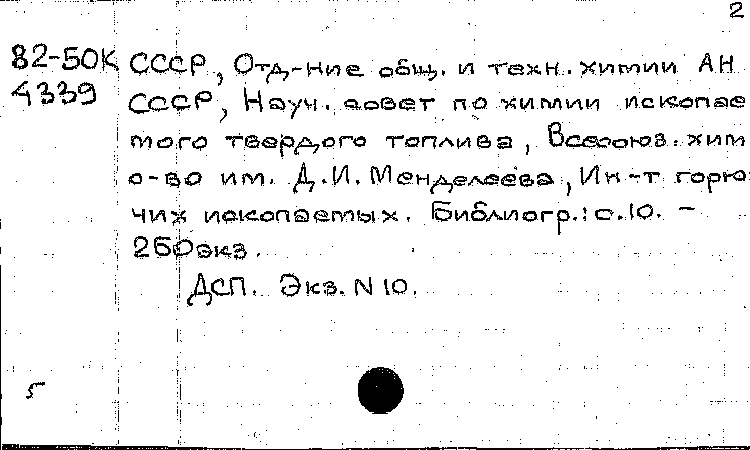 2
82-50К СССР, Отд-ние общ. и техн. химии АН
4339 СССР, Науч. совет по химии ископае
мого твердого топлива, Всесоюз. хим
о-во им. Д.И. Менделеева, Ин-т горю
чих ископаемых. Библиогр.: с.10. -
250экз.
ДСП. Экз. N 10.
5